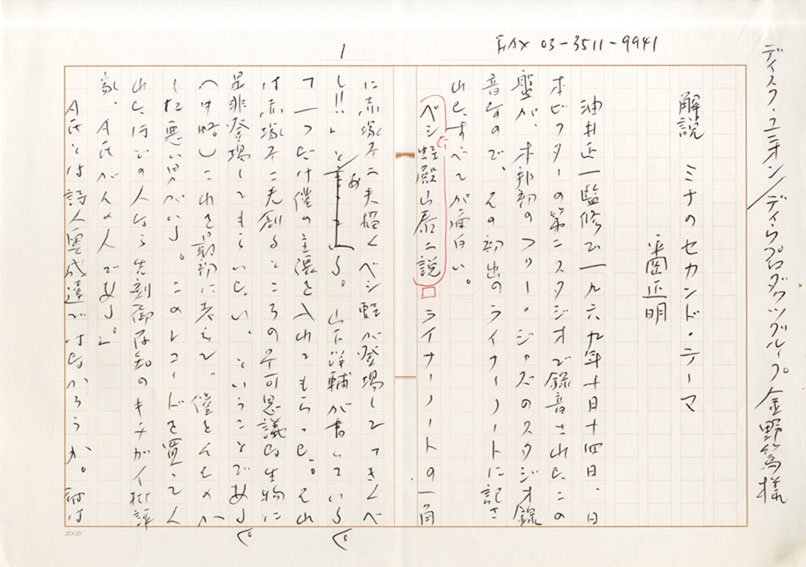 FAX 03-3511-9941
1
ディスク・ユニオン/ディウプロダクツグループ 金野篤様
解説 ミナのセカンド・テーマ
平岡正明
油井正一監修で一九六九年十月十四日、日
本ビクターの第二スタジオで録音されたこの
盤が、本邦初のフリー・ジャズのスタジオ録
音なので、その初出のライナーノートに記さ
れた、すべてが面白い。
ベシ蛭殿山泰二説 ライナーノートの一角
に赤塚不二夫描くベシ蛭が登場してきてべ
し!!」と ある。山下洋輔が書いている。「
て一つだけ僕の主張を入れてもらった。それ
は赤塚不二夫創るところの不可思議な生物に
是非登場してもらいたい、ということである。
(中略)これを最初に考えて、僕をそそのか
した悪い奴がいる。このレコードを買ってく
れたほどの人なら先刻御存知のキチガイ批評
家、A氏がその人である。」
A氏とは詩人奥成達ではなかろうか。
20×20